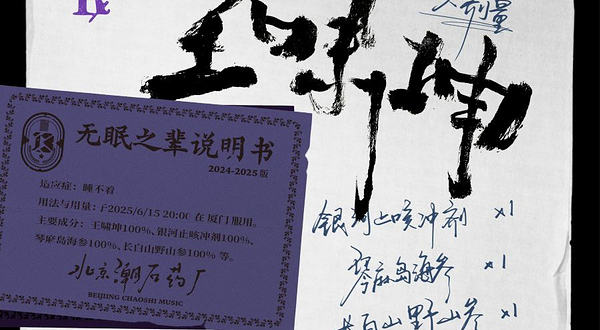 王啸坤
大剂量
无眠之辈说明书
2024-2025版
适应症：睡不着
用法与用量：于2025/6/15 20:00 在厦门服用。
主要成分：王啸坤100%、银河止咳冲剂100%、
琴麻岛海参100%、长白山野山参100% 等。
北京潮石药厂
BEIJING CHAOSHI MUSIC
银河止咳冲剂 x1
琴麻岛海参 x1
长白山野山参 x1